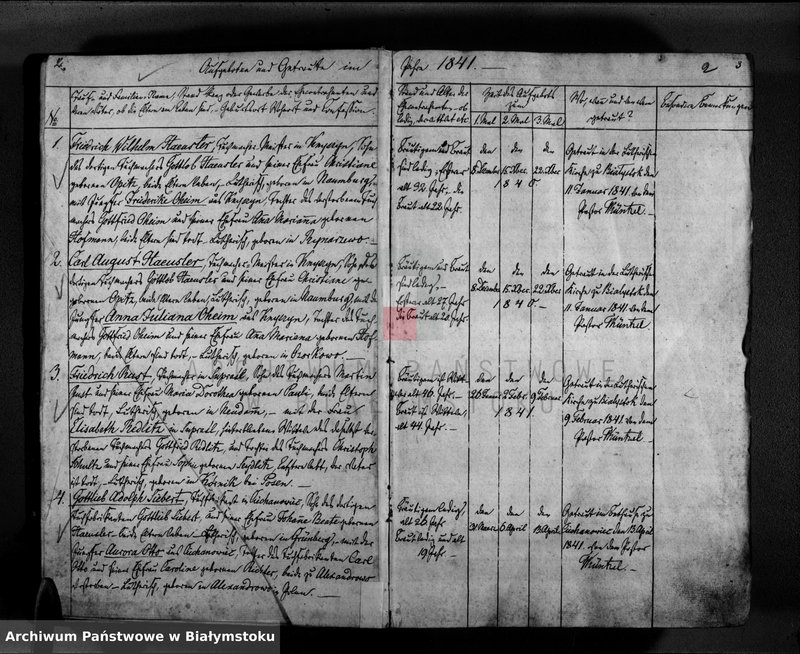 2.
Aufgeboten und Getraute im
Jahre 1841. —
2
3
No
Tauf- und Familien-Name, Stand
und Confession.
Stand und Alter der
ob
ledig,
Zeit des Aufgebots
zum
1. Mal 2. Mal 3. Mal
Wo, wann und von wem
getraut?
Besondere Bemerkungen
1. Friedrich Wilhelm Haeusler, Tuchmacher Meister in Knyszyn, Sohn
des dortigen Tuchmachers Gottlob Haeusler und seiner Ehefrau Christiane
geborenen Opitz, beide Eltern leben, Lutherisch, geboren in Naumburg,
mit Jungfer Friederike Oheim aus Knyszyn, Tochter des verstorbenen Tuch-
machers Gottfried Oheim und seiner Ehefrau Ana Mariana geborenen
Hofmann, beide Eltern sind todt, Lutherisch, geboren in
Bräutigam und Braut
sind ledig, Ersterer
alt 32 Jahr, die
Braut alt 22 Jahr.
den den den
8 December 15 Dber. 22 Dber.
1840.
Getraut in der Lutherischen
Kirche zu Bialystok den
11. Januar 1841. von dem
Pastor Müntzel.
2. Carl August Haeusler, Tuchmacher Meister in Knyszyn, Sohn des
dortigen Tuchmachers Gottlob Haeusler und seiner Ehefrau Christiane ge-
borenen Opitz, beide Eltern leben, Lutherisch, geboren in Naumburg, mit der
Jungfer Anna Juliana Oheim aus Knyszyn, Tochter des Tuch-
machers Gottfried Oheim und seiner Ehefrau Ana Mariana geborenen Hof-
mann, beide Eltern sind todt, Lutherisch, geboren in Ozorkowo.
Bräutigam und Braut
sind ledig,
Ersterer alt 27 Jahr
die Braut alt 24 Jahr.
den den den
8 December 15 Dber. 22 Dber.
1840.
Getraut in der Lutherischen
Kirche zu Bialystok den
11. Januar 1841. von dem
Pastor Müntzel.
3. Friedrich Rust, Tuchmacher in Suprasl, Sohn des Tuchmachers Martin
Rust und seiner Ehefrau Maria Dorothea geborenen Pauli, beide Eltern
sind todt, Lutherisch, geboren in Neudam, — mit der Frau
Elisabeth Redlitz in Suprasl, hinterlassene Wittwe des daselbst ver-
storbenen Tuchmachers Gottfried Redlitz, und Tochter des Tuchmachers Christoph
Schultz und seiner Ehefrau Sophia geborenen Seydlitz, letztere lebt, der Vater
ist todt, Lutherisch, geboren in Kornik bei Posen.
Bräutigam ist Wittwer
alt 46 Jahr.
Braut ist Wittwe,
alt 44 Jahr.
den den den
26 Januar 2 Febr. 9 Februar
1841.
Getraut in der Lutherischen
Kirche zu Bialystok den
9. Februar 1841. von dem
Pastor Müntzel
4. Gottlieb Adolph Siebert, in Ciechanowiec, Sohn des dortigen
Tuchfabrikanten Gottlieb Siebert, und seiner Ehefrau Johane Beate geborenen
Haeusler, beide Eltern leben, Lutherisch, geboren in Grünberg, mit der
Jungfer Aurora Otto aus Ciechanowiec, Tochter des Tuchfabrikanten Carl
Otto und seiner Ehefrau Caroline geborenen Richter, beide zu Alexandrowo
verstorben, Lutherisch, geboren in Alexandrowo in Polen.
Bräutigam ledig,
alt 26 Jahr
Braut ledig und alt
19 Jahr.
den den den
30 Maerz 6 April 13 April
Getraut im Bethause zu
Ciechanowiec den 13 April
1841. von dem Pastor
Müntzel.
PAŃSTWOWE
Archiwum Państwowe w Białymstoku